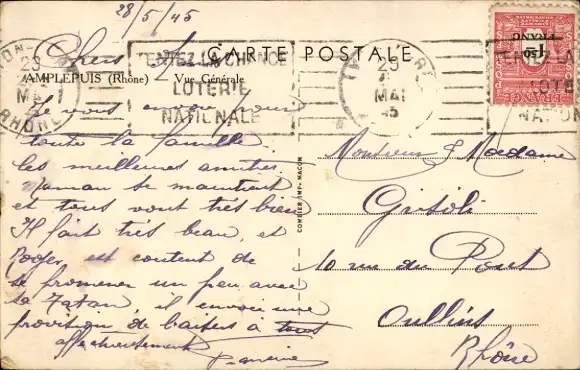 28/5/45
CARTE POSTALE
AMPLEPUIS (Rhône) Vue Générale
Chers
Je vous envoie pour
toute la famille
les meilleures amitiés
Maman se maintient
et tous vont très bien
Il fait très beau, et
Roger, est content de
se promener un peu avec
sa Tatan, il envoie une
provision de baisers à tous
affectueusement
COMBIER IMP. MACON
TENTEZ LA CHANCE
LOTERIE
NATIONALE
29
MAI
45
RHONE
29
MAI
45
TENTEZ LA
LOTE
NATION
1F50
FRANCE
POSTES
Monsieur & Madame
Grisoli
10 rue du Pont
Oullins
Rhône